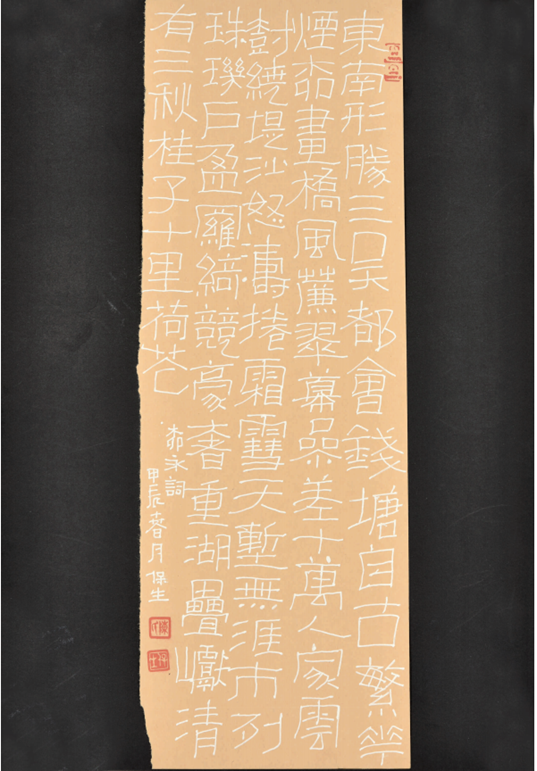 東南形勝三吳都會錢塘自古繁華
煙柳畫橋風簾翠幕參差十萬人家雲
樹繞堤沙怒濤捲霜雪天塹無涯市列
珠璣戶盈羅綺競豪奢重湖疊巘清
有三秋桂子十里荷花
柳永詞
甲辰春月保生